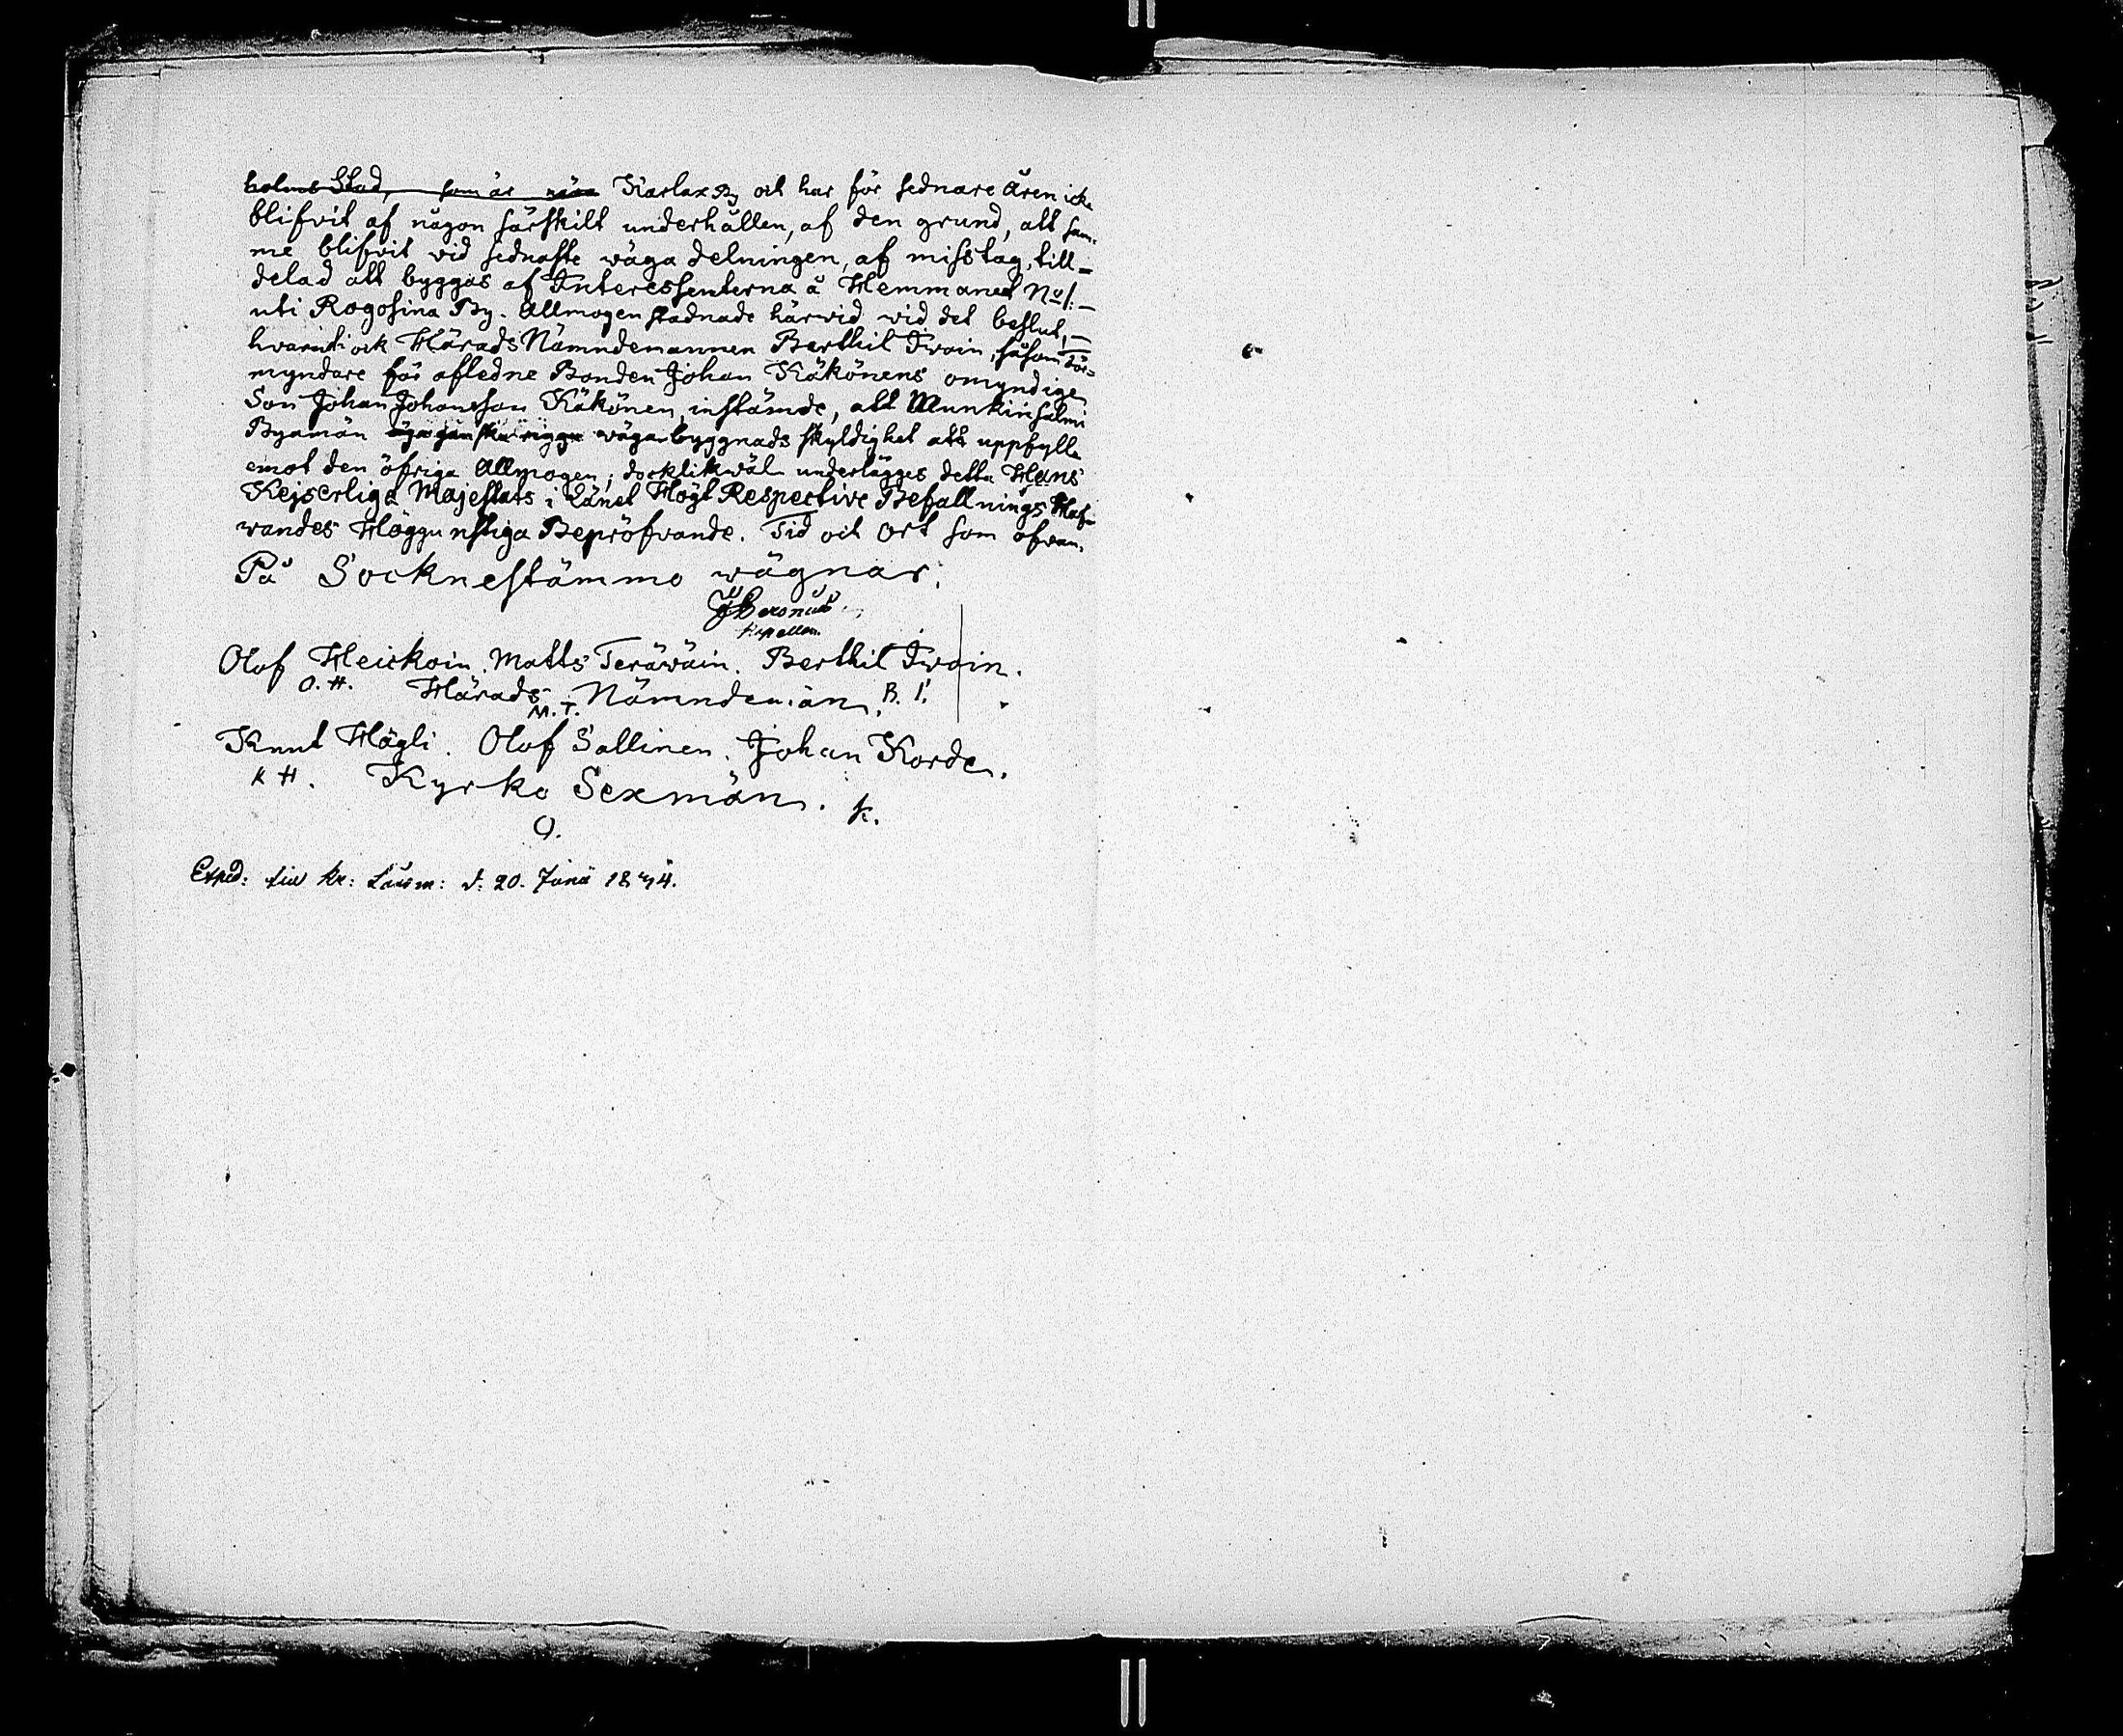 holms Stad, som är nära Karlax By och har för sednare åren icke
blifvit af någon särskilt underhållen, af den grund, att sam-
me blifvit vid sednaste wäga delningen, af misstag, till-
delad att byggas af Interessenterna å Hemmanet No 1. —
uti Rogosina By. Allmogen stadnade härwid wid det beslut, —
hvaruti ock Härads Nämndemannen Berthil Iwoin, såsom För-
myndare för afledne Bonden Johan Käkönens omyndige
Son Johan Johansson Käkönen, instämde, att Munkinsalmi
Byamän wägabyggnads skyldighet att uppfylla
emot den öfriga Allmogen; docklikwäl underlägges detta Hans
Kejserliga Majestäts i Länet Högt Respective Befallnings Haf-
wandes Höggunstiga Bepröfvande. Tid och Ort som ofvan.
På Socknestämmo wägnar:
Kapellan.
Olof Heickoin. Matts Teräwäin. Berthil Iwoin.
O. H. Härads Nämndemän. B. I.
M. T.
Knut Hägli. Olof Sallinen. Johan Korde.
K H. Kyrko Sexmän. K.
O.
Exped: till Kr: Länsm: d: 20. Junii 1844.